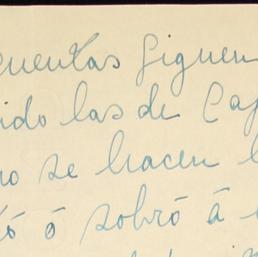 cuentas siguen
ido las de Caj
no se hacen l
ó ó sobró á